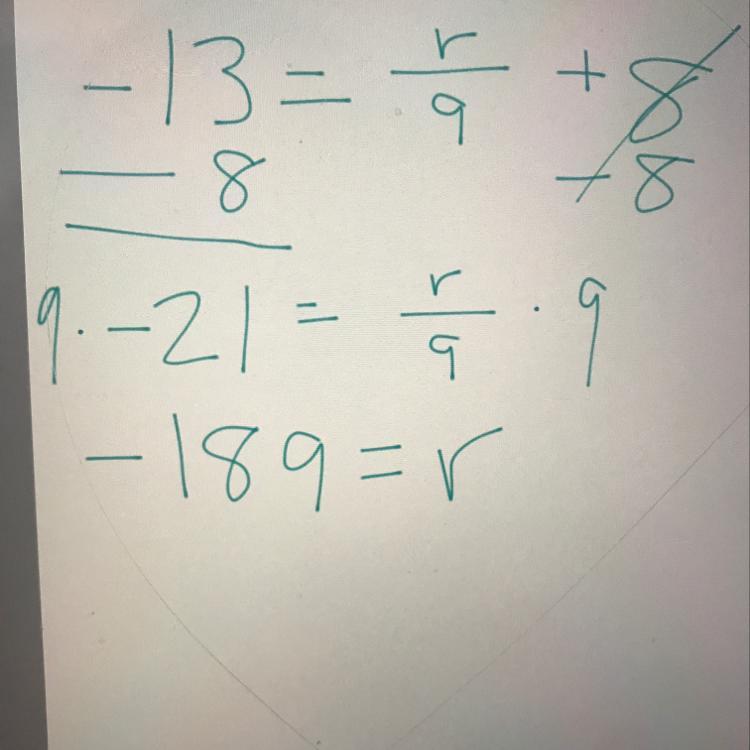 -13 = r/9 + 8
- 8 - 8
9 · -21 = r/9 · 9
-189 = r